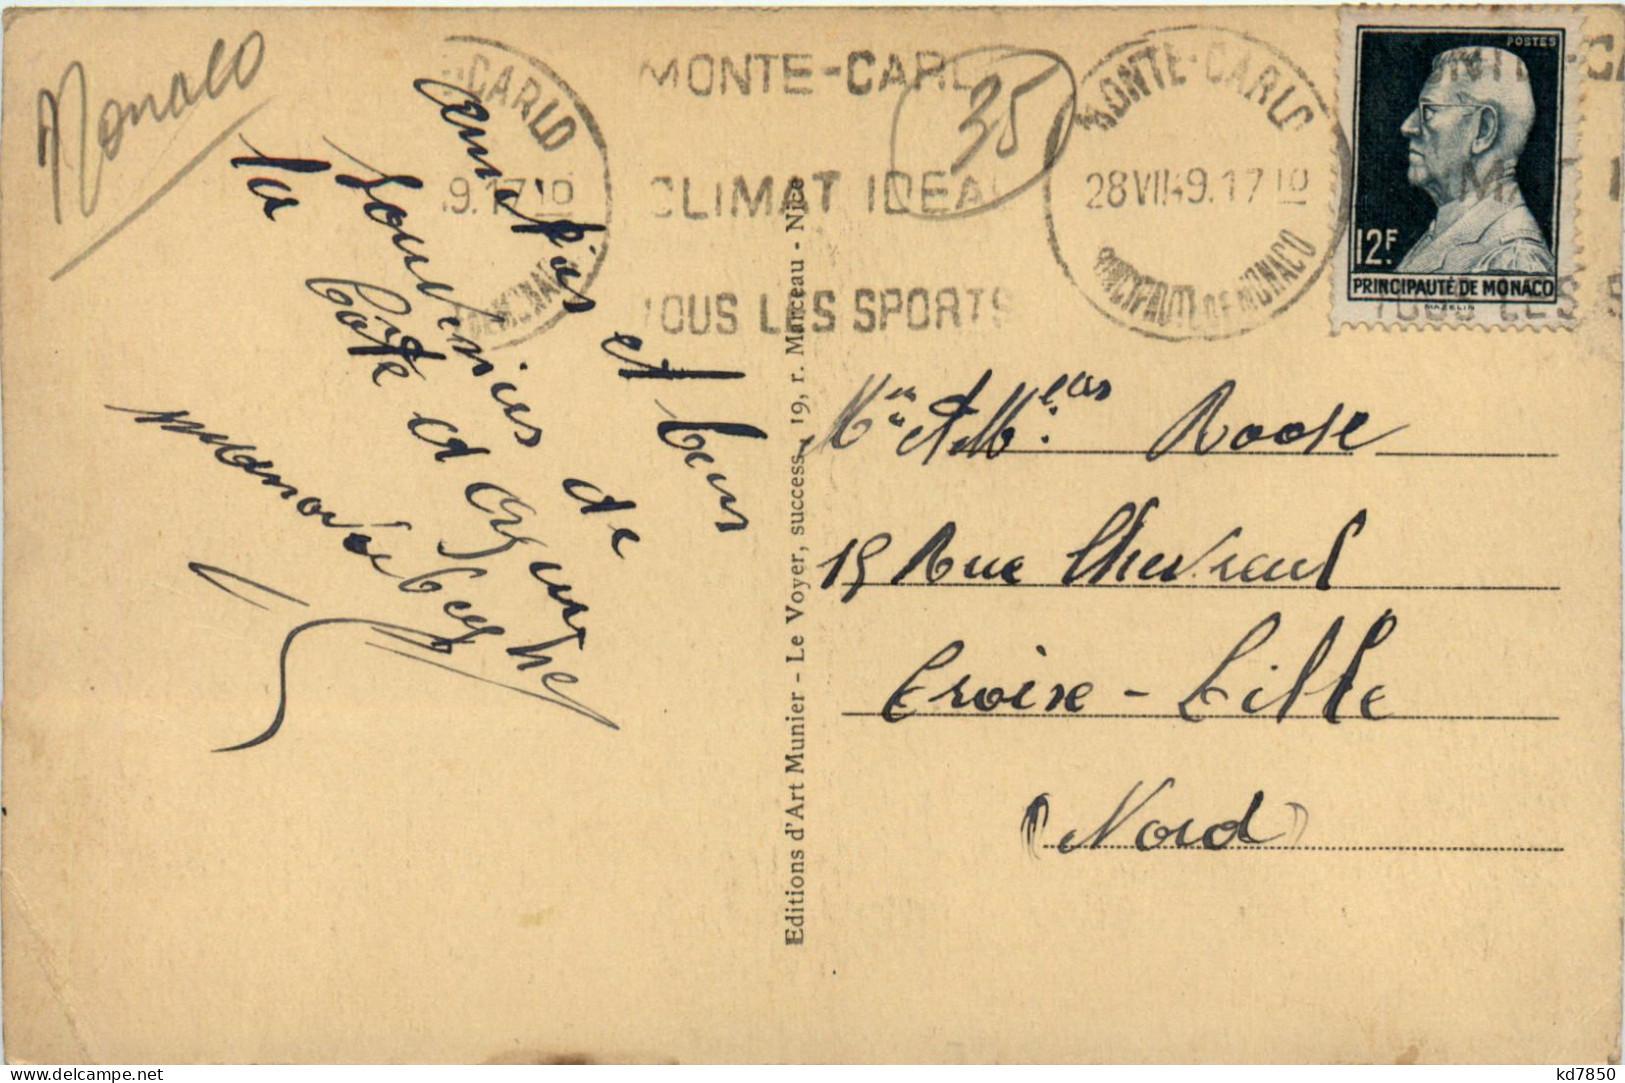 Monaco
-CARLO
9.17 10
DE MONACO
MONTE-CARL
CLIMAT IDEA
TOUS LES SPORTS
35
MONTE-CARLO
28 VII 49.17 10
PRINCIPAUTE DE MONACO
POSTES
12F.
PRINCIPAUTÉ DE MONACO
MAZELIN
et bons
souvenirs de
la Côte d'Azur
Editions d'Art Munier - Le Voyer, success., 19, r. Marceau - Nice
Roose
15 Rue Chevreul
Croix - Lille
(Nord)
kd7850